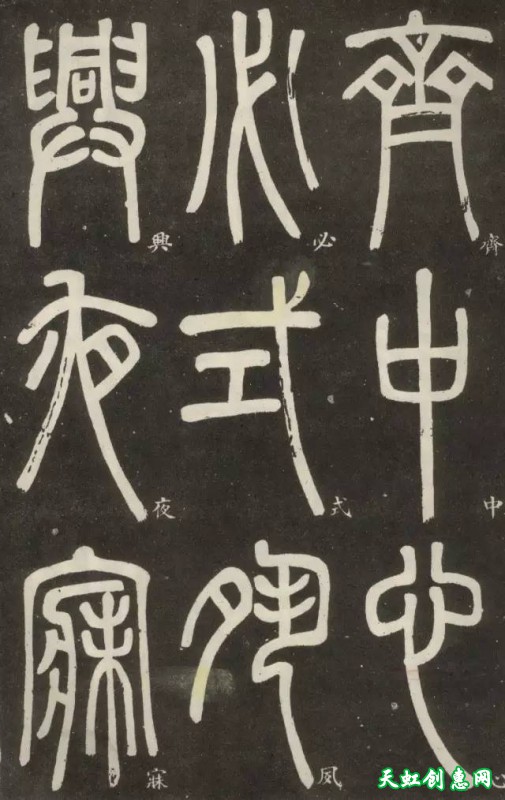 齊中心
必式夙
興夜寐
齊
中
心
必
式
夙
興
夜
寐
天虹创惠网